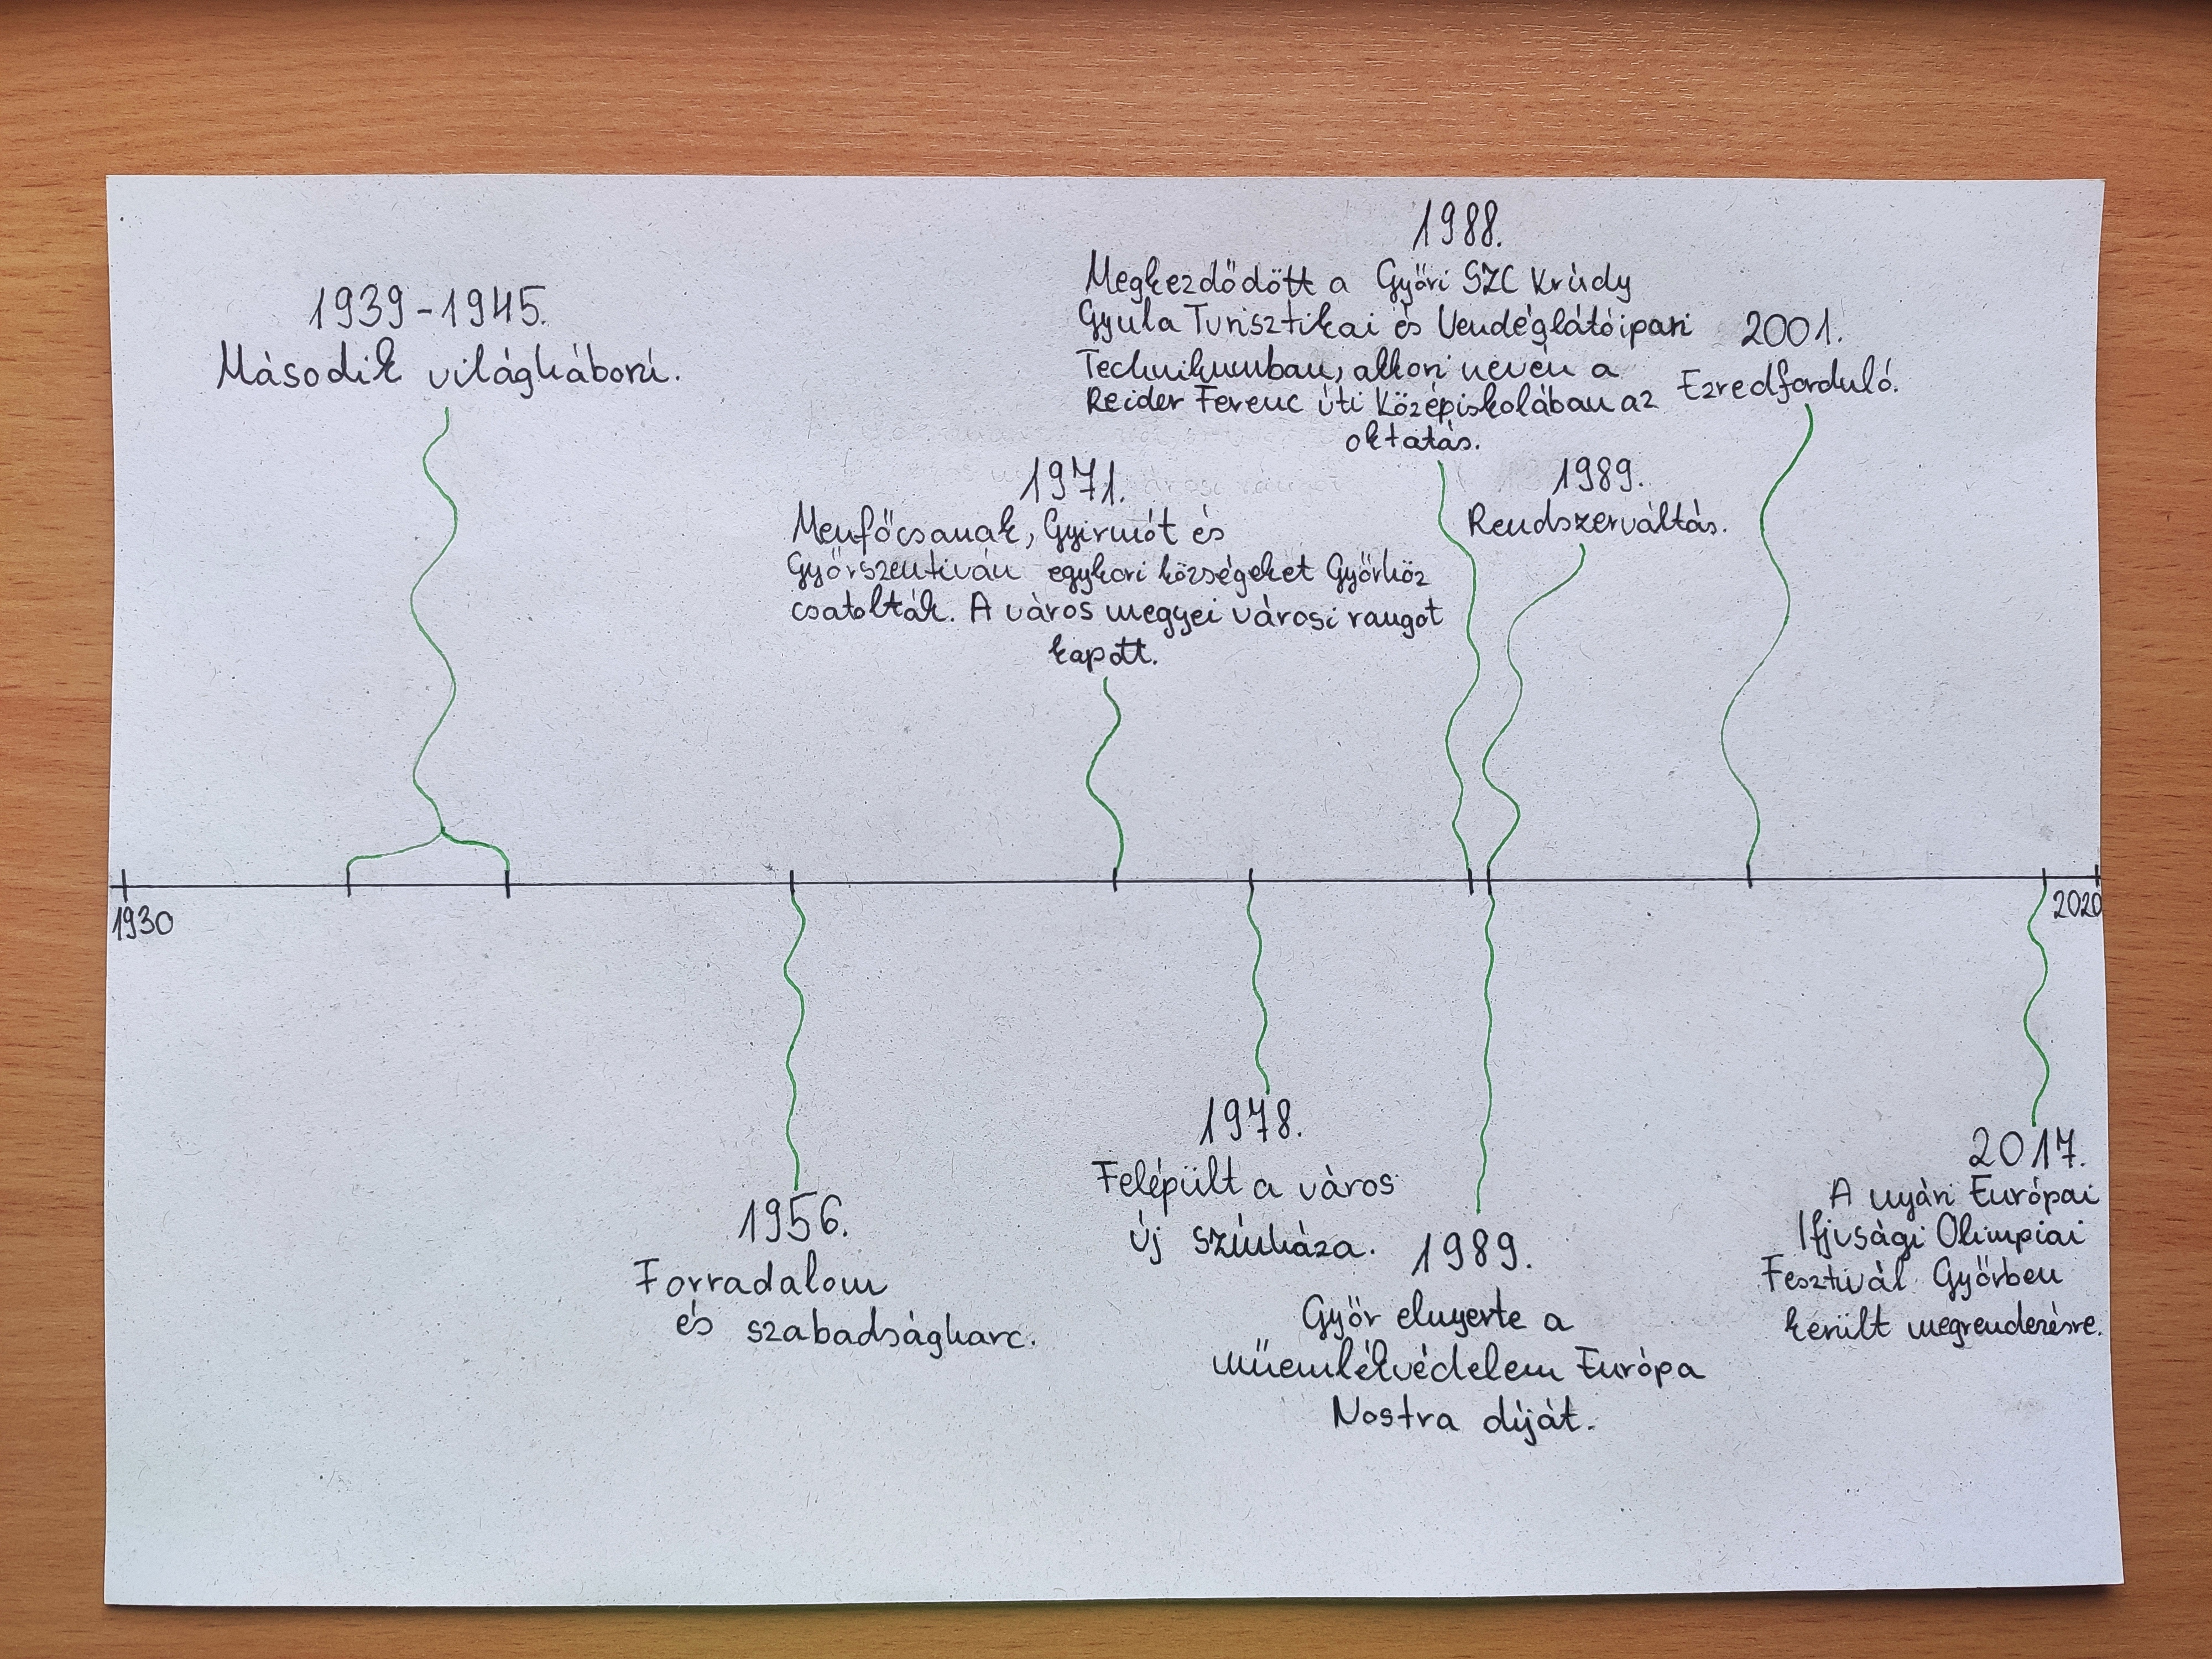 1939-1945.
Második világháború.
1971.
Menfőcsanak, Gyirmót és
Győrszentiván egykori községeket Győrhöz
csatolták. A város megyei városi rangot
kapott.
1988.
Megkezdődött a Győri SZC Krúdy
Gyula Turisztikai és Vendéglátóipari
Technikumban, akkori nevén a
Reider Ferenc úti Középiskolában az
oktatás.
1989.
Rendszerváltás.
2001.
Ezredforduló.
1930
2020
1956.
Forradalom
és szabadságharc.
1978.
Felépült a város
új színháza.
1989.
Győr elnyerte a
műemlékvédelem Európa
Nostra díját.
2017.
A nyári Európai
Ifjusági Olimpiai
Fesztivál Győrben
került megrendezésre.